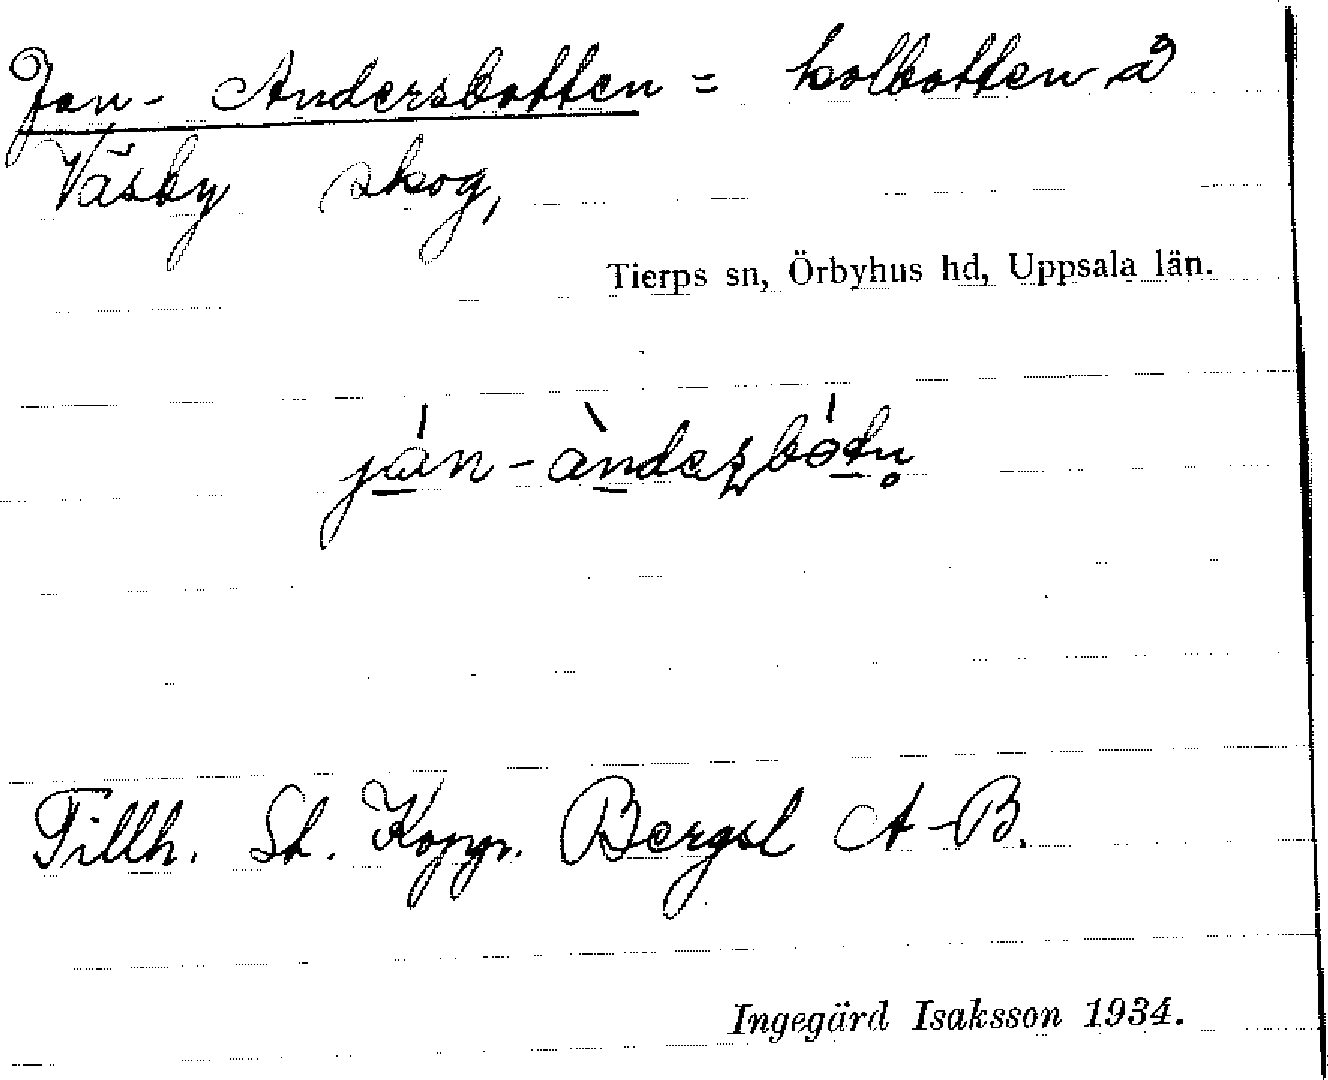 Jan-Andersbotten = kolbotten å
Väsby skog,
Tierps sn, Örbyhus hd, Uppsala län.
ján-àndeʂbótn̥
Tillh. St. Koppr. Bergsl A-B.
Ingegärd Isaksson 1934.